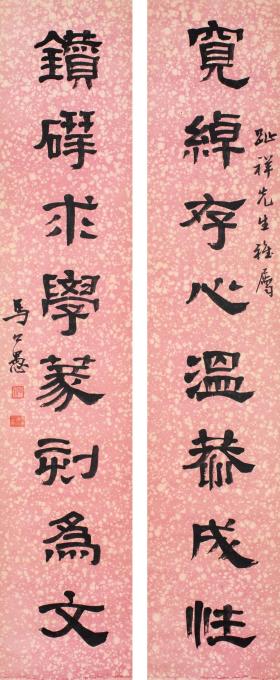 寬綽存心溫恭成性
祥先生雅屬
鑽礎求學篆刻為文
馬公愚